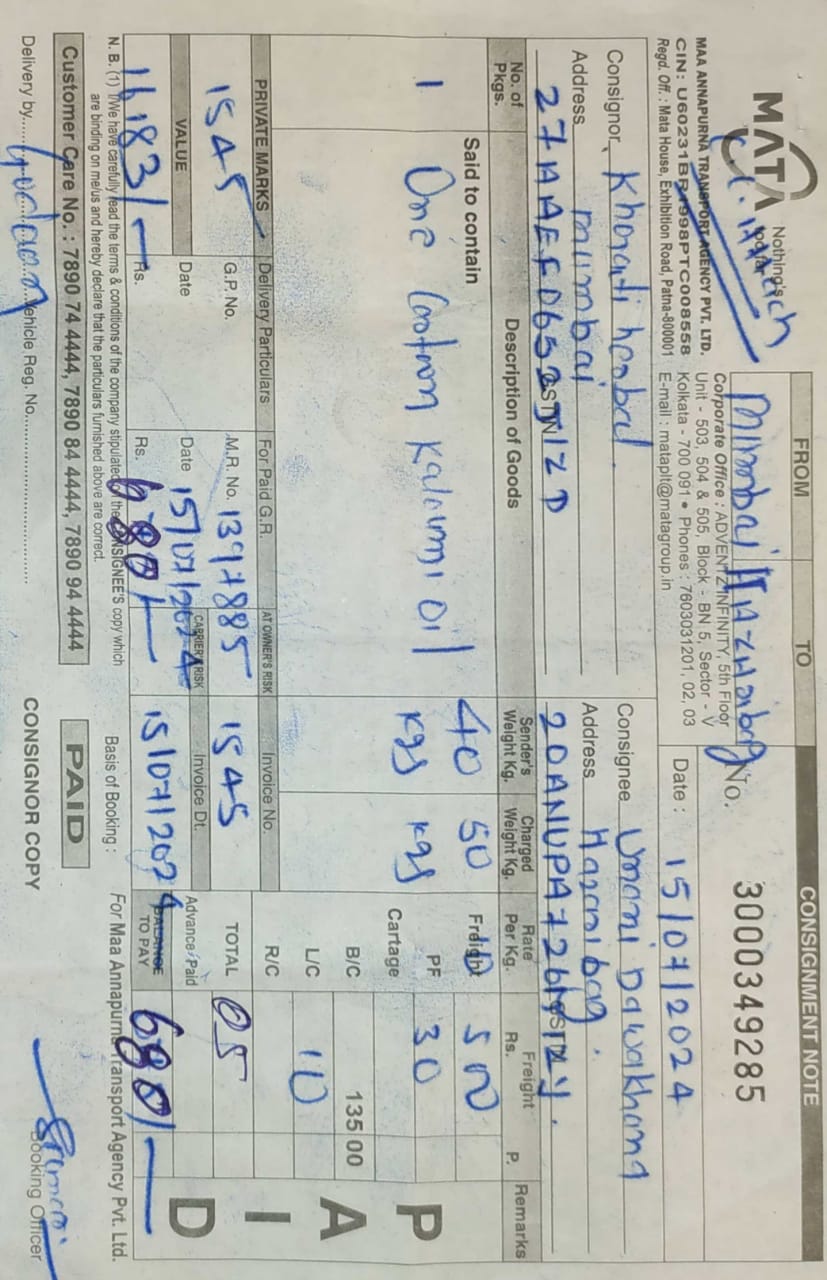 MATA
Nothing's
too far
MAA ANNAPURNA TRANSPORT AGENCY PVT. LTD.
CIN: U60231BR1998PTC008558
Regd. Off. : Mata House, Exhibition Road, Patna-800001
FROM
TO
Mumbai
Hazaribag
Corporate Office : ADVENTZ INFINITY, 5th Floor
Unit - 503, 504 & 505, Block - BN 5, Sector - V
Kolkata - 700 091 • Phones : 7603031201, 02, 03
E-mail : mataplt@matagroup.in
CONSIGNMENT NOTE
No. 3000349285
Date : 15/07/2024
Consignor Khorati herbal
Address mumbai
GSTN
Consignee
Address Hazaribag
GSTN
No. of Pkgs.
Description of Goods
Sender's Weight Kg.
Charged Weight Kg.
Rate Per Kg.
Freight
Rs. P.
Remarks
Said to contain
1 One Cartoon Kaloumi oil 40 Kgs 50 Kgs
Freight 10 500
PF 30
Cartage
B/C 135 00
L/C 10
R/C
TOTAL
Advance Paid
BALANCE TO PAY 680/-
PAID
PRIVATE MARKS
1545
VALUE
16183/-
Delivery Particulars
G.P. No.
Date
Rs.
For Paid G.R.
AT OWNER'S RISK
M.R. No. 1397885
CARRIER'S RISK
Date 15/07/2024
Rs. 680/-
Invoice No.
1545
Invoice Dt.
15/07/2024
N. B. (1) I/We have carefully read the terms & conditions of the company stipulated on the CONSIGNEE'S copy which
are binding on me/us and hereby declare that the particulars furnished above are correct.
Basis of Booking :
For Maa Annapurna Transport Agency Pvt. Ltd.
Customer Care No. : 7890 74 4444, 7890 84 4444, 7890 94 4444
PAID
Delivery by Godown Vehicle Reg. No.
CONSIGNOR COPY
Booking Officer